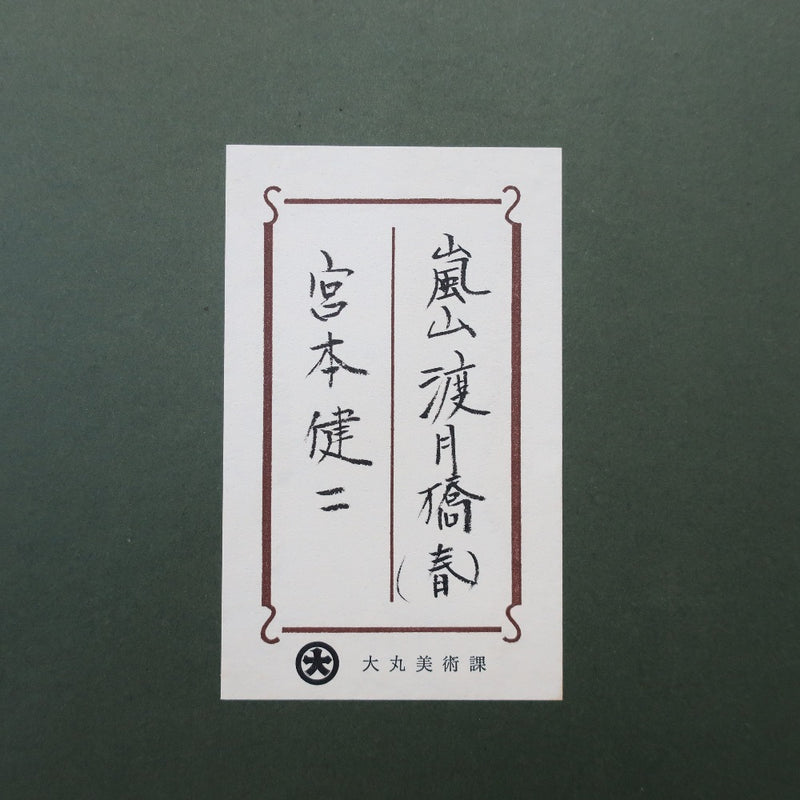 嵐山渡月橋(春)
宮本健二
大 大丸美術課